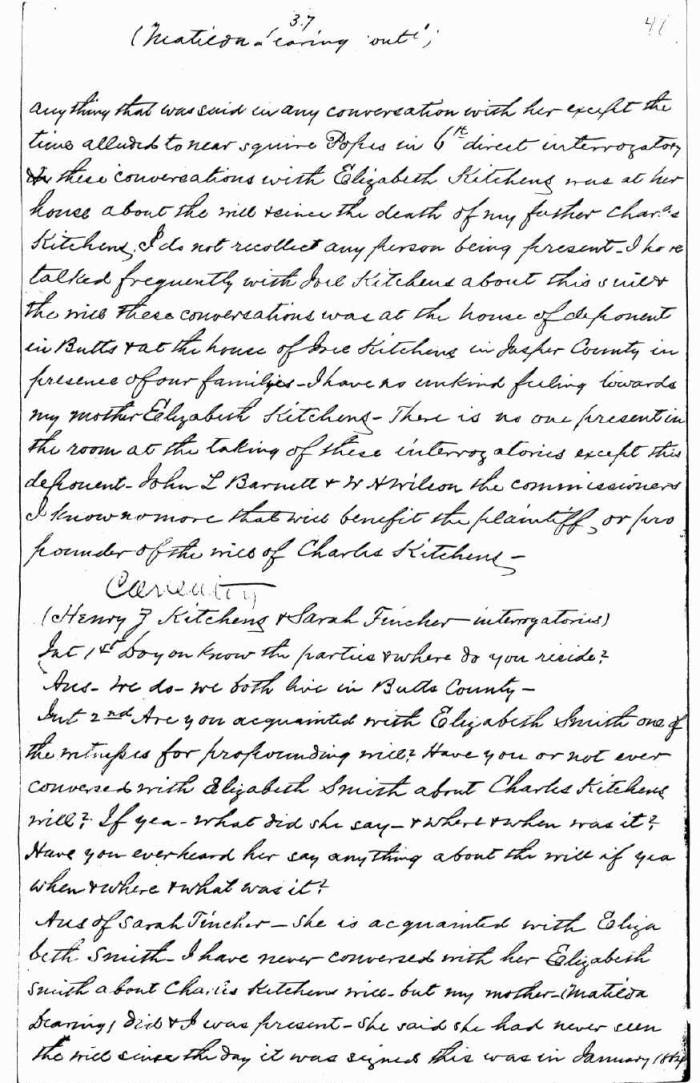 37
41
(Matilda Dearing outs;
anything that was said in any conversation with her except the
time alluded to near squire Popes in 6th direct interrogatory
In these conversations with Elizabeth Kitchens was at her
house about the will & since the death of my father Charls
Kitchens, I do not recollect any person being present - I have
talked frequently with Joel Kitchens about this suit &
the will these conversations was at the house of deponent
in Butts & at the house of Joel Kitchens in Jasper County in
presence of our families - I have no unkind feeling towards
my mother Elizabeth Kitchens - There is no one present in
the room at the taking of these interrogatories except this
deponent - John L Barnett & W H Wilson the commissioners
I know no more that will benefit the plaintiff, or pro
pounder of the will of Charles Kitchens -
(Henry Z Kitchens & Sarah Fincher - interrogatories)
Int 1st Do you know the parties & where do you reside?
Ans - We do - we both live in Butts County -
Int 2nd Are you acquainted with Elizabeth Smith one of
the witnesses for propounding will? Have you or not ever
conversed with Elizabeth Smith about Charles Kitchens
will? If yea - what did she say - & where & when was it?
Have you ever heard her say anything about the will if yea
when & where & what was it?
Ans of Sarah Fincher - She is acquainted with Eliza
beth Smith - I have never conversed with her Elizabeth
Smith about Charles Kitchens will - but my mother - (Matilda
Dearing) did & I was present - She said she had never seen
the will since the day it was signed this was in January